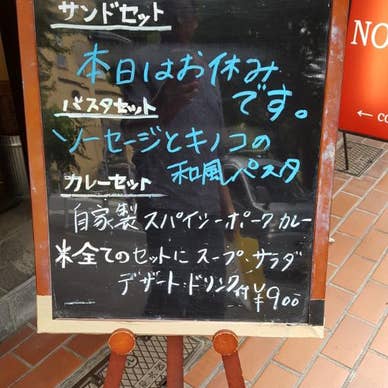 サンドセット
本日はお休み
です。
パスタセット
ソーセージとキノコの
和風パスタ
カレーセット
自家製スパイシーポークカレー
※全てのセットにスープ、サラダ
デザート・ドリンク付
¥900
NO
← co